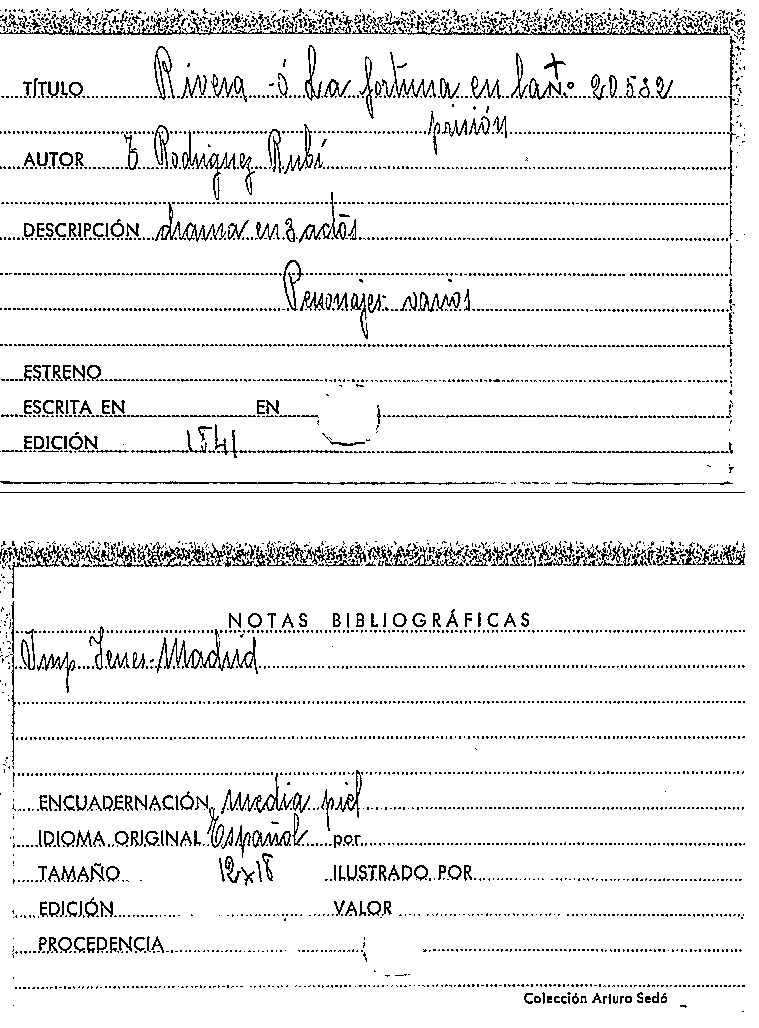 TÍTULO Rivera -ó La fortuna en la N.º 20532
prisión
AUTOR T Rodriguez Rubí
DESCRIPCIÓN drama en 3 actos
Personajes: varios
ESTRENO
ESCRITA EN EN
EDICIÓN 1841
NOTAS BIBLIOGRÁFICAS
Imp. Yenes-Madrid
ENCUADERNACIÓN media piel
IDIOMA ORIGINAL Español por
TAMAÑO 12x18 ILUSTRADO POR
EDICIÓN VALOR
PROCEDENCIA
Colección Arturo Sedó